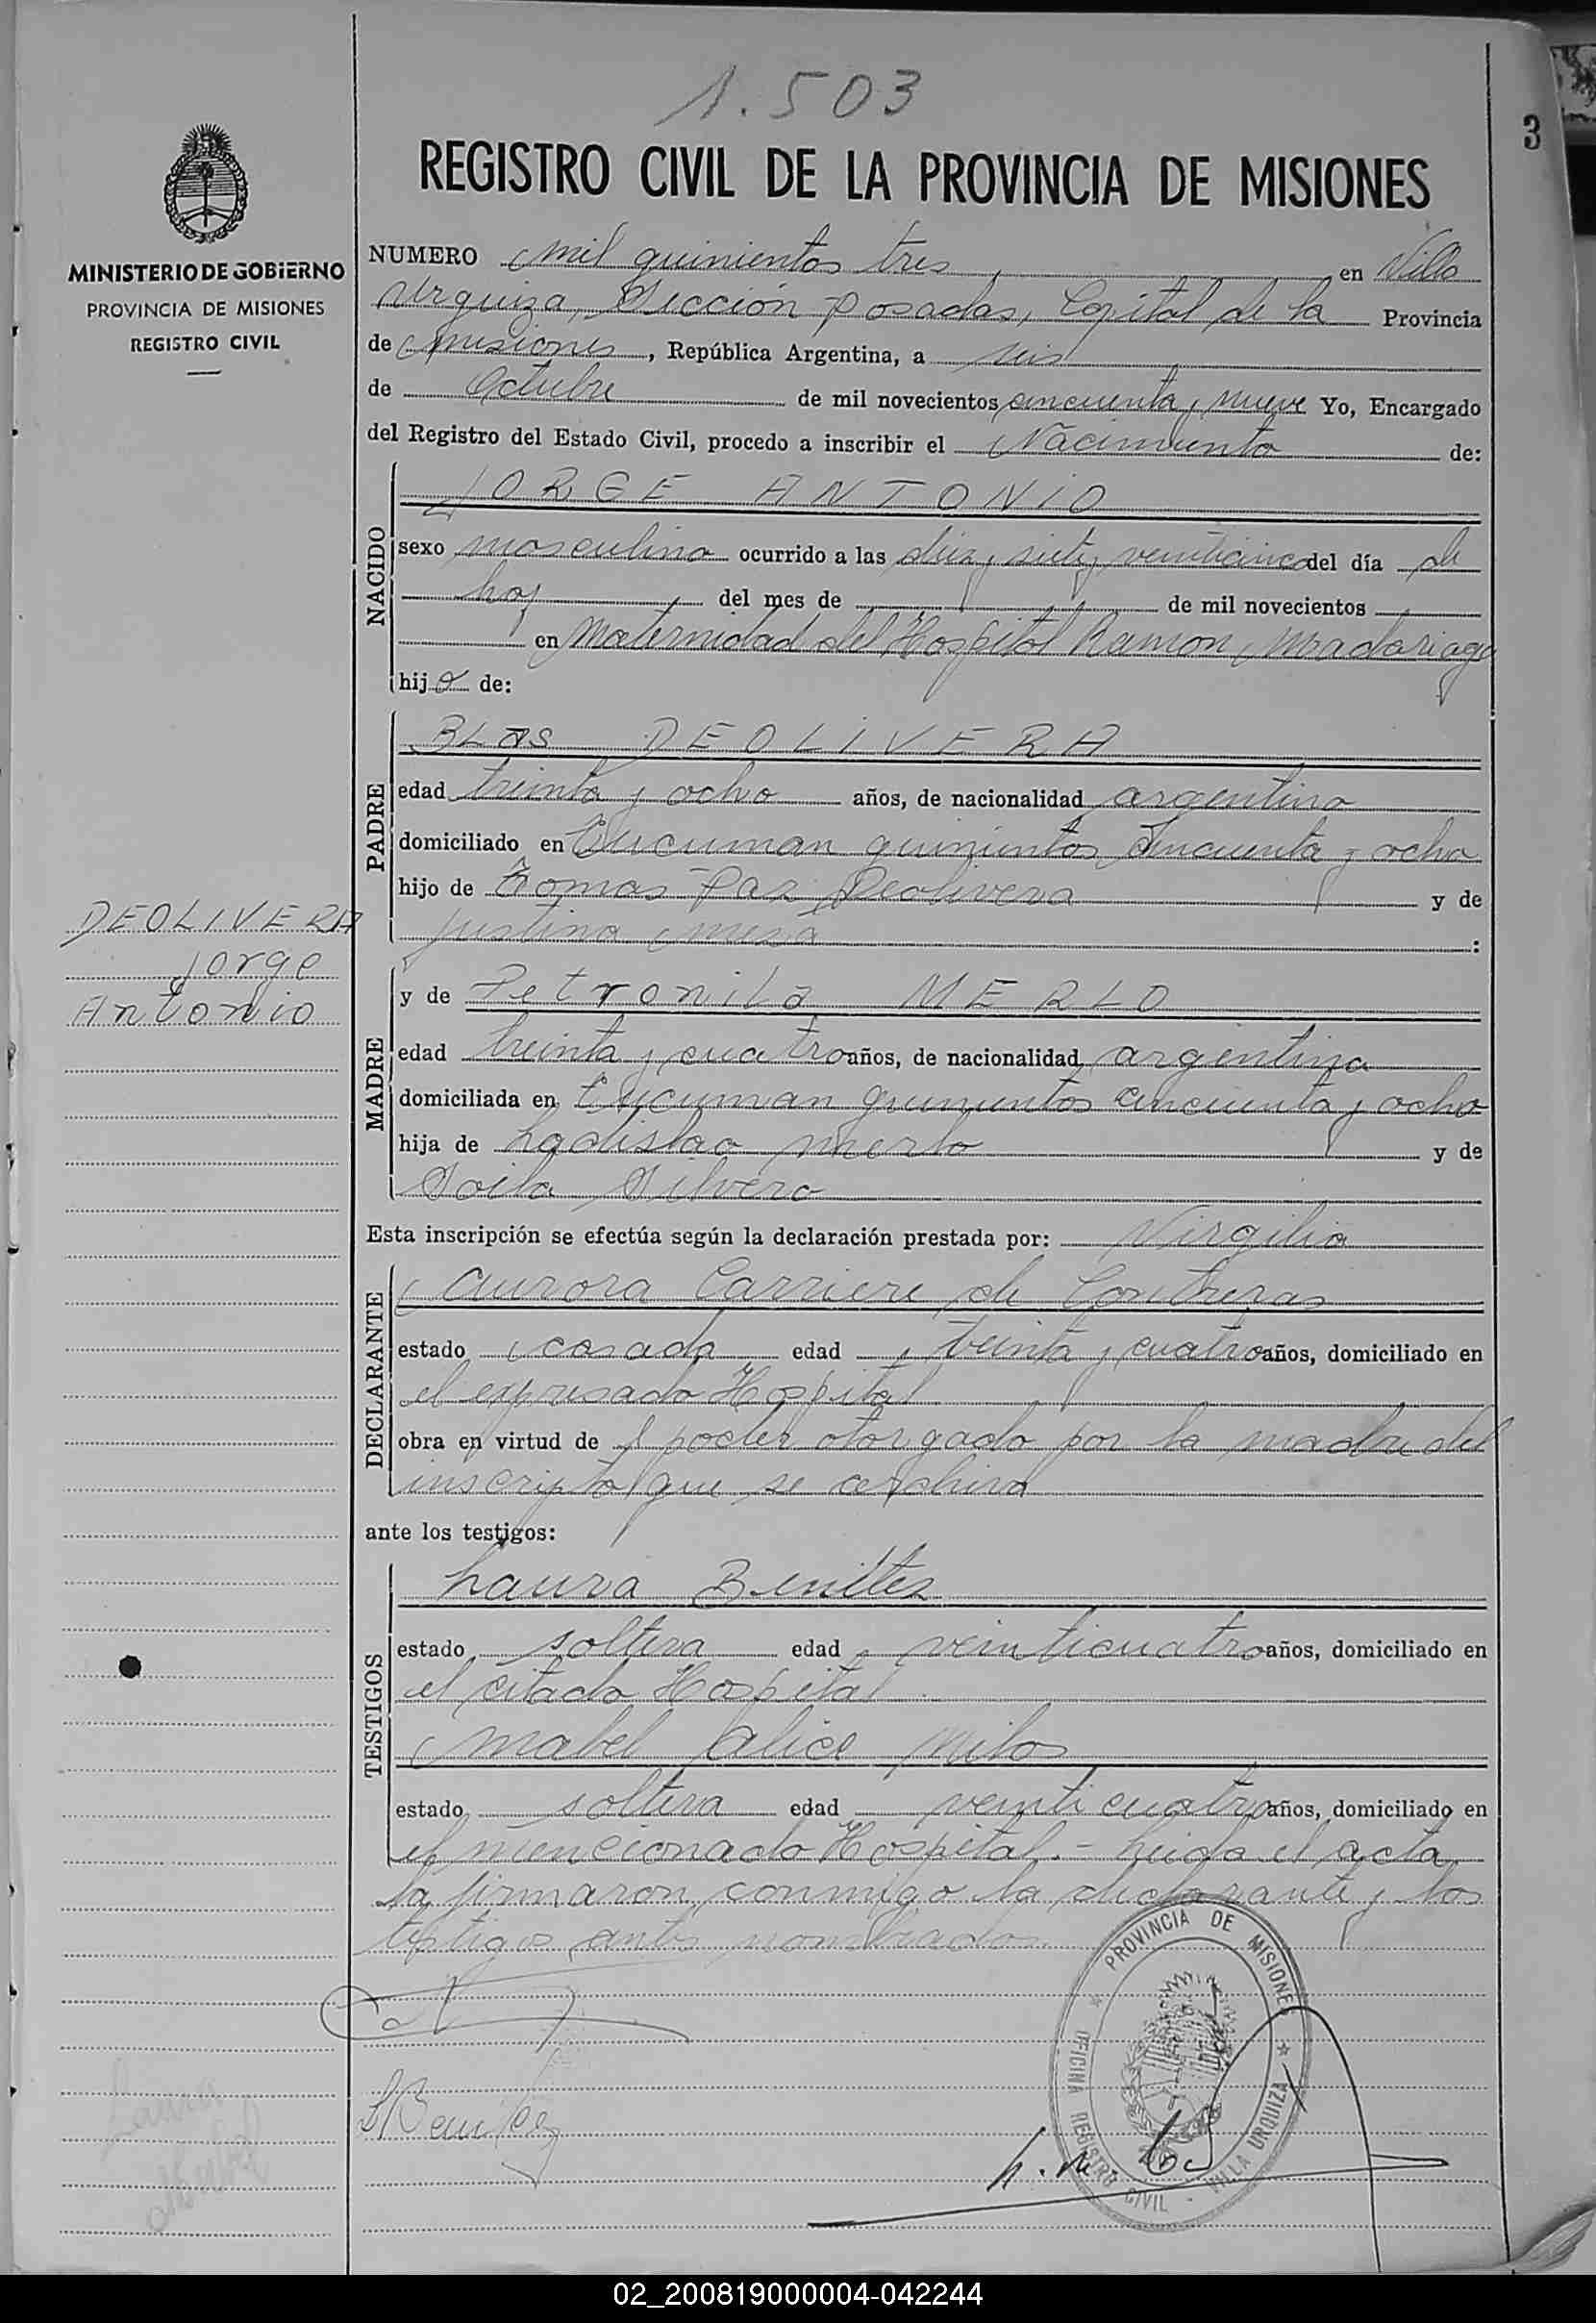 1.503
3
REGISTRO CIVIL DE LA PROVINCIA DE MISIONES
MINISTERIO DE GOBIERNO
PROVINCIA DE MISIONES
REGISTRO CIVIL
NUMERO mil quinientos tres en Villa
Urquiza, Sección Posadas, Capital de la Provincia
de Misiones, República Argentina, a seis
de Octubre de mil novecientos cincuenta y nueve Yo, Encargado
del Registro del Estado Civil, procedo a inscribir el Nacimiento de:
NACIDO
JORGE ANTONIO
sexo masculino ocurrido a las diez y siete y veinticinco del día de
hoy del mes de de mil novecientos
en Maternidad del Hospital Ramon Madariaga
hijo de:
PADRE
BLAS DEOLIVERA
edad treinta y ocho años, de nacionalidad argentino
domiciliado en Tucuman quinientos cincuenta y ocho
hijo de Tomas Paz Deolivera y de
Justina Meza :
DEOLIVERA
Jorge
Antonio
MADRE
y de Petronila MERLO
edad treinta y cuatro años, de nacionalidad argentina
domiciliada en Tucuman quinientos cincuenta y ocho
hija de Ladislao Merlo y de
Soila Silvero
Esta inscripción se efectúa según la declaración prestada por: Virgilia
DECLARANTE
Aurora Carriere de Contreras
estado casada edad treinta y cuatro años, domiciliado en
el expresado Hospital
obra en virtud de poder otorgado por la madre del
inscripto que se archiva
ante los testigos:
TESTIGOS
Laura Benittez
estado soltera edad veinticuatro años, domiciliado en
el citado Hospital
Mabel Alice Milos
estado soltera edad veinticuatro años, domiciliado en
el mencionado Hospital.- Leida el acta
la firmaron conmigo la declarante y los
testigos antes nombrados.
PROVINCIA DE MISIONES
OFICINA REGISTRO CIVIL - VILLA URQUIZA
LBenitez
Laura
Mabel
02_200819000004-042244